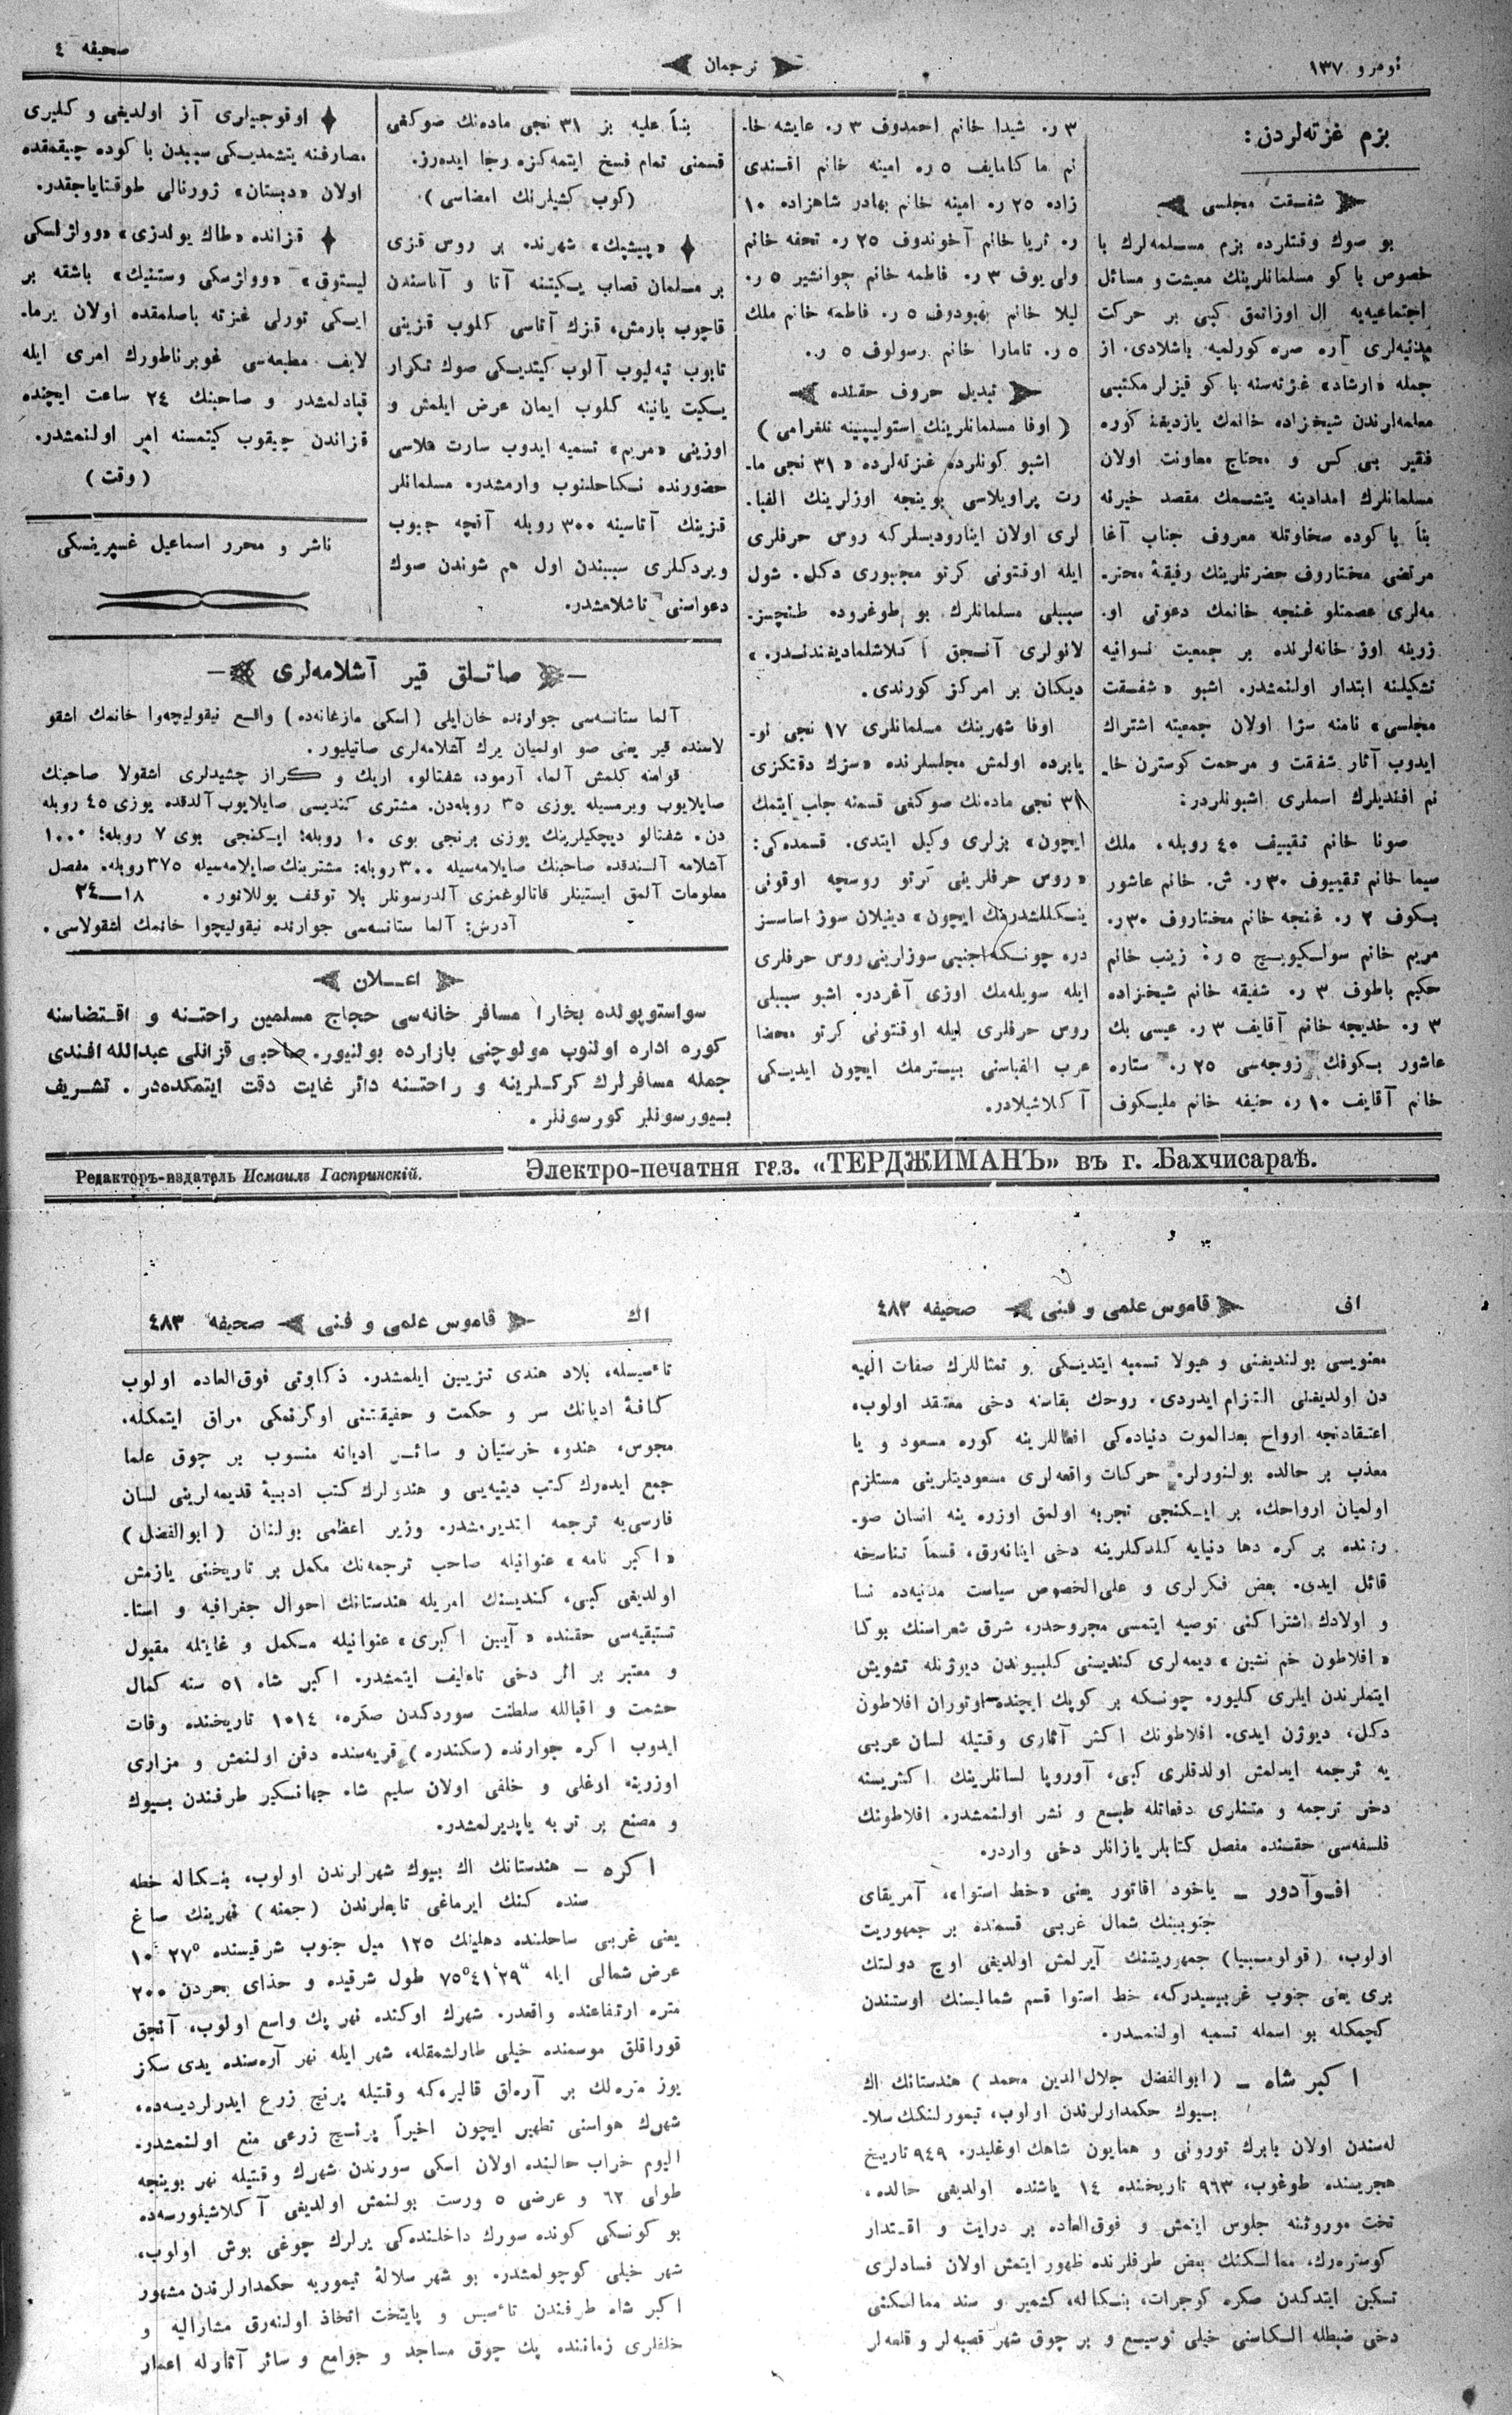 نومرو ١٣٧
ترجمان
صحیفه ٤
بزم غزته‌لردن:
شفقت مجلسی
بو صوك وقتلرده بزم مسلمه‌لرك با
خصوص باكو مسلمانلرینك معیشت و مسائل
اجتماعیه‌یه ال اوزاتمق كبی بر حركت
مدنیه‌لری آره صره كورلمیه باشلادی. از
جمله «ارشاد» غزته‌سنه باكو قیزلر مكتبی
معلمه‌لرندن شیخزاده خانمك یازدیغنه كوره
فقیر بی كس و محتاج معاونت اولان
مسلمانلرك امدادینه یتشمك مقصد خیرنه
بناً باكوده سخاوتله معروف جناب آغا
مرتضی مختاروف حضرتلرینك رفیقهٔ محتر-
مه‌لری عصمتلو غنجه خانمك دعوتی او-
زرینه اوز خانه‌لرنده بر جمعیت نسوانیه
تشكیلنه ابتدار اولنمشدر. اشبو «شفقت
مجلسی» نامنه سزا اولان جمعیته اشتراك
ایدوب آثار شفقت و مرحمت كوسترن خا-
نم افندیلرك اسملری اشبونلردر:
صونا خانم تقییف ٤٠ روبله، ملك
سیما خانم تقییوف ٣٠ ر. ش. خانم عاشور
بكوف ٢ ر. غنجه خانم مختاروف ٣٠ ر.
مریم خانم سولكیویچ ٥ ر. زینب خانم
حكیم باطوف ٣ ر. شفیقه خانم شیخزاده
٣ ر. خدیجه خانم آقایف ٣ ر. عیسی بك
عاشور بكوفك زوجه‌سی ٢٥ ر. ستاره
خانم آقایف ١٠ ر. حنیفه خانم ملیكوف
٣ ر. شیدا خانم احمدوف ٣ ر. عایشه خا-
نم ما كنامایف ٥ ر. امینه خانم افندی
زاده ٢٥ ر. امینه خانم بهادر شاهزاده ١٠
ر. ثریا خانم آخوندوف ٢٥ ر. تحفه خانم
ولی یوف ٣ ر. فاطمه خانم جوانشیر ٥ ر.
لیلا خانم بهبودوف ٥ ر. فاطمه خانم ملك
٥ ر. تامارا خانم رسولوف ٥ ر.
تبدیل حروف حقنده
(اوفا مسلمانلرینك استولیپینه تلغرامی)
اشبو كونلرده غزته‌لرده «٣١ نجی ما-
رت پراویلاسی بوینچه اوزلرینك الفبا-
لری اولان اینارودیسلركه روس حرفلری
ایله اوقتونی كرتو مجبوری دكل. شول
سببلی مسلمانلرك بو طوغروده طنچسز-
لانولری آنجق آ كلاشلمادیغندندر.»
دیكان بر امركز كورندی.
اوفا شهرینك مسلمانلری ١٧ نجی نو-
یابرده اولمش مجلسلرنده «سزك دقتكزی
٣١ نجی ماده‌نك صوكغی قسمنه جلب ایتمك
ایچون» بزلری وكیل ایتدی. قسمده‌كی:
«روس حرفلرینی كرتو روسچه اوقونی
ینكللشدرنك ایچون» دییلان سوز اساسسز
در، چونكه اجنبی سوزلرینی روس حرفلری
ایله سویله‌مك اوزی آغردر. اشبو سببلی
روس حرفلری ایله اوقتونی كرتو محضا
عرب الفباسنی بیترمك ایچون ایدیكی
آ كلاشیلادر.
بناً علیه بز ٣١ نجی ماده‌نك صوكغی
قسمنی تمام فسخ ایتمه‌كزه رجا ایده‌رز.
(كوب كشیلرنك امضاسی).
«پیشپك» شهرنده بر روس قزی
بر مسلمان قصاب یكیتنه آتا و آناسندن
قاچوب بارمش، قزك آتاسی كلوب قزینی
تابوب تپه‌لیوب آلوب كیتدیكی صوك تكرار
یكیت یانینه كلوب ایمان عرض ایلمش و
اوزینی «مریم» تسمیه ایدوب سارت ملاسی
حضورنده نكاحلنوب وارمشدر. مسلمانلر
قزینك آتاسینه ٣٠٠ روبله آقچه جیوب
ویردكلری سببندن اول هم شوندن صوك
دعواسنی تاشلامشدر.
اوقوجیلری آز اولدیغی و كلیری
مصارفنه یتشمدیكی سببدن باكوده چیقمقده
اولان «دبستان» ژورنالی طوقتایاجقدر.
قزانده «طاك یولدزی» «وولژسكی
لیستوق» «وولژسكی وستنیك» باشقه بر
ایكی تورلی غزته باصلمقده اولان یرما-
لایف مطبعه‌سی غوبرناطورك امری ایله
قپادلمشدر و صاحبنك ٢٤ ساعت ایچنده
قزاندن چیقوب كیتمسنه امر اولنمشدر.
(وقت)
ناشر و محرر اسماعیل غسپرینسكی
صاتلق قیر آشلامه‌لری
آلما ستانسه‌سی جوارنده خان‌ایلی (اسكی مازغانه‌ده) واقع نیقولیچه‌وا خانمك اشقو
لاسنده قیر یعنی صو اولمیان یرك آشلامه‌لری صاتیلیور.
قوامنه كلمش آلما، آرمود، شفتالو، اریك و كراز چشیدلری اشقولا صاحبنك
صایلایوب ویرمسیله یوزی ٣٥ روبله‌دن. مشتری كندیسی صایلایوب آلدقده یوزی ٤٥ روبله
دن. شفتالو دیچكیلرینك یوزی برنجی بوی ١٠ روبله؛ ایكنجی بوی ٧ روبله؛ ١٠٠٠
آشلامه آلندقده صاحبنك صایلامه‌سیله ٣٠٠ روبله؛ مشترینك صایلامه‌سیله ٣٧٥ روبله. مفصل
معلومات آلمق ایستینلر قاتالوغمزی آلدرسونلر بلا توقف یوللانور. ١٨—٢٤
آدرش: آلما ستانسه‌سی جوارنده نیقولیچوا خانمك اشقولاسی.
اعلان
سواستوپولده بخارا مسافر خانه‌سی حجاج مسلمین راحتنه و اقتضاسنه
كوره اداره اولنوب مولوچنی بازارده بولنیور. صاحبی قزانلی عبدالله افندی
جمله مسافرلرك كركلرینه و راحتنه دائر غایت دقت ایتمكده‌در. تشریف
بیورسونلر كورسونلر.
Редакторъ-издатель Исмаилъ Гаспринскій.
Электро-печатня газ. «ТЕРДЖИМАНЪ» въ г. Бахчисараѣ.
اف
قاموس علمی و فنی
صحیفه ٤٨٢
معنویسی بولندیغنی و هیولا تسمیه ایتدیكی و تمثاللرك صفات الهیه
دن اولدیغنی التزام ایدردی. روحك بقاسنه دخی معتقد اولوب،
اعتقادنجه ارواح بعدالموت دنیاده‌كی افعاللرینه كوره مسعود و یا
معذب بر حالده بولنورلر. حركات واقعه‌لری مسعودیتلرینی مستلزم
اولمیان ارواحك، بر ایكنجی تجربه اولمق اوزره ینه انسان صو-
رتنده بر كره دها دنیایه كلدكلرینه دخی اینانه‌رق، قسماً تناسخه
قائل ایدی. بعض فكرلری و علی‌الخصوص سیاست مدنیه‌ده نسا
و اولادك اشتراكنی توصیه ایتمسی مجروحدر، شرق شعراسنك بوكا
«افلاطون خم نشین» دیمه‌لری كندیسنی كلبیوندن دیوژنله تشویش
ایتملرندن ایلری كلیور. چونكه بر كوپك ایچنده اوتوران افلاطون
دكل، دیوژن ایدی. افلاطونك اكثر آثاری وقتیله لسان عربی
یه ترجمه ایدلمش اولدقلری كبی، آوروپا لسانلرینك اكثریسنه
دخی ترجمه و متنلری دفعاتله طبع و نشر اولنمشدر. افلاطونك
فلسفه‌سی حقنده مفصل كتابلر یازانلر دخی واردر.
افوآدور – یاخود اقاتور یعنی «خط استوا»، آمریقای
جنوبینك شمال غربی قسمنده بر جمهوریت
اولوب، (قولومبیا) جمهوریتنك آیرلمش اولدیغی اوچ دولتك
بری یعنی جنوب غربیسیدركه، خط استوا قسم شمالیسنك اوستندن
كچمكله بو اسمله تسمیه اولنمشدر.
اكبر شاه – (ابوالفضل جلال‌الدین محمد) هندستانك اك
بیوك حكمدارلرندن اولوب، تیمورلنكك سلا-
له‌سندن اولان بابرك تورونی و همایون شاهك اوغلیدر. ٩٤٩ تاریخ
هجریسنده طوغوب، ٩٦٣ تاریخنده ١٤ یاشنده اولدیغی حالده،
تخت موروثنه جلوس ایتمش و فوق‌العاده بر درایت و اقتدار
كوستره‌رك، ممالكنك بعض طرفلرنده ظهور ایتمش اولان فسادلری
تسكین ایتدكدن صكره كوجرات، بنكاله، كشمیر و سند ممالكنی
دخی ضبطله الكاسنی خیلی توسیع و بر چوق شهر قصبه‌لر و قلعه‌لر
اك
قاموس علمی و فنی
صحیفه ٤٨٣
تأسیسله، بلاد هندی تزیین ایلمشدر. ذكاوتی فوق‌العاده اولوب
كافهٔ ادیانك سر و حكمت و حقیقتنی اوكرنمكی مراق ایتمكله،
مجوس، هندو، خرستیان و سائر ادیانه منسوب بر چوق علما
جمع ایده‌رك كتب دینیه‌یی و هندولرك كتب ادبیهٔ قدیمه‌لرینی لسان
فارسی‌یه ترجمه ایتدیرمشدر. وزیر اعظمی بولنان (ابوالفضل)
«اكبر نامه» عنوانیله صاحب ترجمه‌نك مكمل بر تاریخنی یازمش
اولدیغی كبی، كندیسنك امریله هندستانك احوال جغرافیه و استا-
تستیقیه‌سی حقنده «آیین اكبری» عنوانیله مكمل و غایتله مقبول
و معتبر بر اثر دخی تألیف ایتمشدر. اكبر شاه ٥١ سنه كمال
حشمت و اقبالله سلطنت سوردكدن صكره، ١٠١٤ تاریخنده وفات
ایدوب اكره جوارنده (سكندره) قریه‌سنده دفن اولنمش و مزاری
اوزرینه اوغلی و خلفی اولان سلیم شاه جهانكیر طرفندن بیوك
و مصنع بر تربه یاپدیرلمشدر.
اكره – هندستانك اك بیوك شهرلرندن اولوب، بنكاله خطه
سنده كنك ایرماغی تابعلرندن (جمنه) نهرینك صاغ
یعنی غربی ساحلنده دهلینك ١٢٥ میل جنوب شرقیسنده ٢٧° ١٠
عرض شمالی ایله ٢٩ ٤١ ٧٥° طول شرقیده و حذای بحردن ٢٠٠
متره ارتفاعنده واقعدر. شهرك اوكنده نهر پك واسع اولوب، آنجق
قوراقلق موسمنده خیلی طارلشمقله، شهر ایله نهر آره‌سنده یدی سكز
یوز متره‌لك بر آره‌لق قالیركه وقتیله پرنج زرع ایدرلردیسه‌ده،
شهرك هواسنی تطهیر ایچون اخیراً پرنج زرعی منع اولنمشدر.
الیوم خراب حالنده اولان اسكی سورندن شهرك وقتیله نهر بوینجه
طولی ٦٢ و عرضی ٥ ورست بولنمش اولدیغی آ كلاشیلورسه‌ده
بو كونكی كونده سورك داخلنده‌كی یرلرك چوغی بوش اولوب،
شهر خیلی كوچولمشدر. بو شهر سلالهٔ تیموریه حكمدارلرندن مشهور
اكبر شاه طرفندن تأسیس و پایتخت اتخاذ اولنه‌رق مشارالیه و
خلفلری زماننده پك چوق مساجد و جوامع و سائر آثارله اعمار